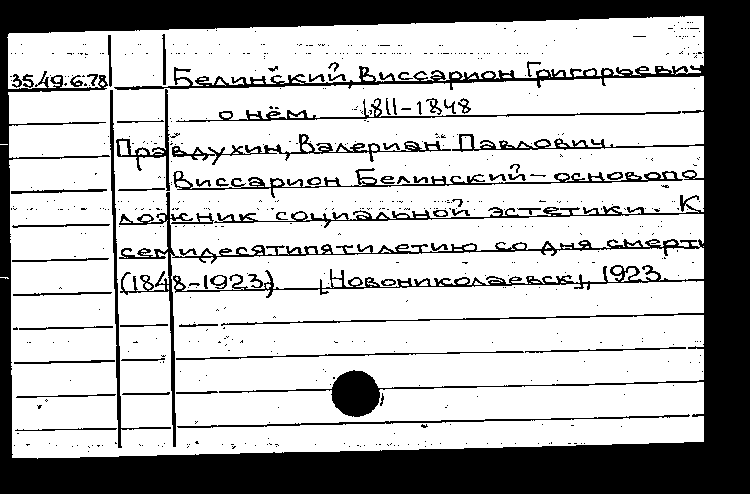 35.49.6.78 Белинский, Виссарион Григорьевич
о нём. 1811-1848
Правдухин, Валериан Павлович.
Виссарион Белинский - основопо
ложник социальной эстетики. К
семидесятипятилетию со дня смерти
(1848-1923). [Новониколаевск], 1923.